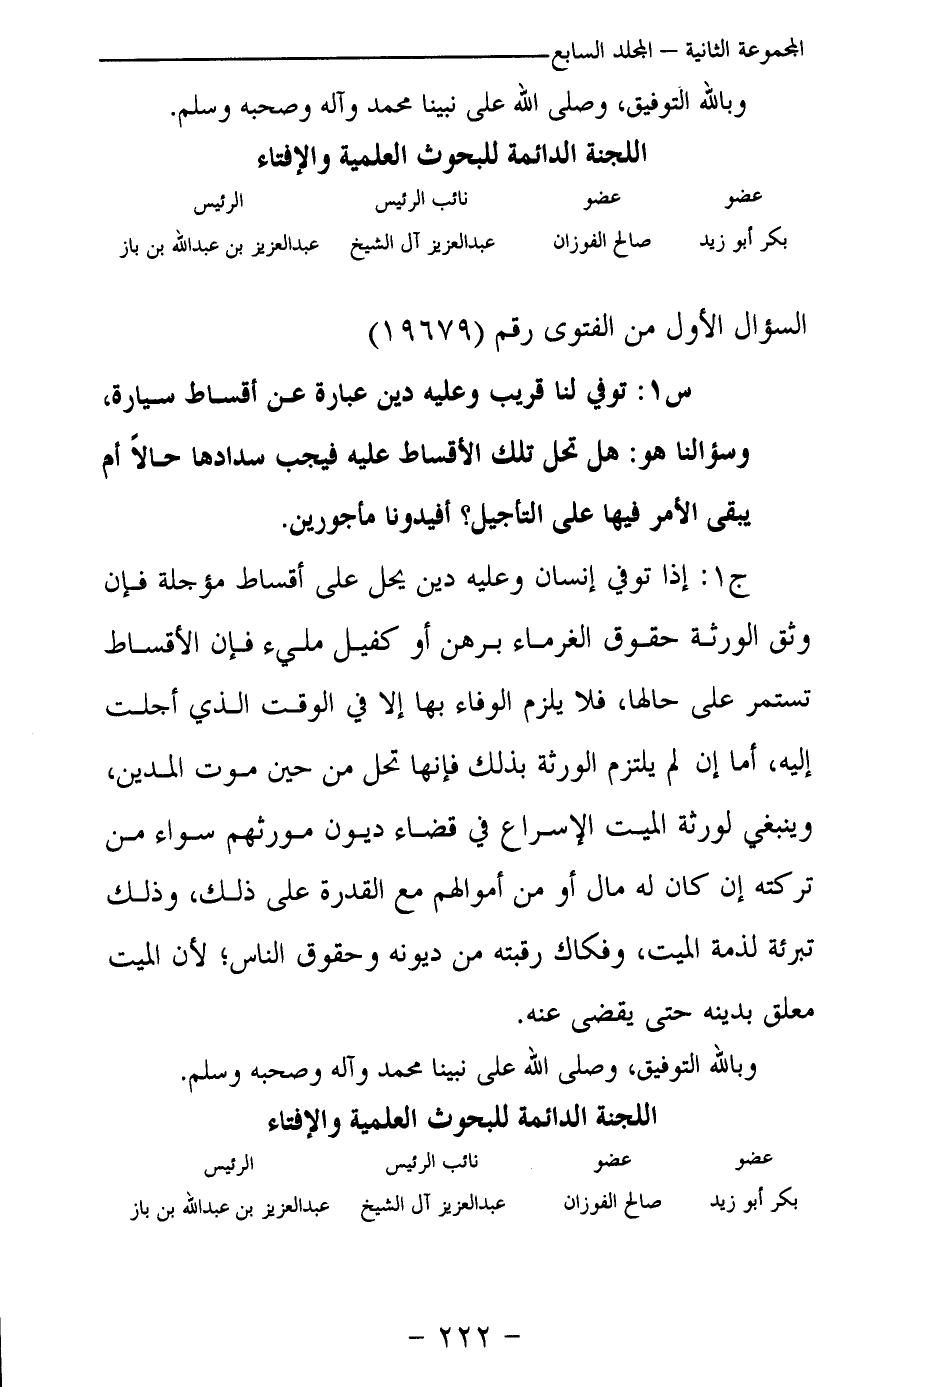 المجموعة الثانية – المجلد السابع
وبالله التوفيق، وصلى الله على نبينا محمد وآله وصحبه وسلم.
اللجنة الدائمة للبحوث العلمية والإفتاء
عضو عضو نائب الرئيس الرئيس
بكر أبو زيد صالح الفوزان عبدالعزيز آل الشيخ عبدالعزيز بن عبدالله بن باز
السؤال الأول من الفتوى رقم (١٩٦٧٩)
س١: توفي لنا قريب وعليه دين عبارة عن أقساط سيارة،
وسؤالنا هو: هل تحل تلك الأقساط عليه فيجب سدادها حالاً أم
يبقى الأمر فيها على التأجيل؟ أفيدونا مأجورين.
ج١: إذا توفي إنسان وعليه دين يحل على أقساط مؤجلة فإن
وثق الورثة حقوق الغرماء برهن أو كفيل مليء فإن الأقساط
تستمر على حالها، فلا يلزم الوفاء بها إلا في الوقت الذي أجلت
إليه، أما إن لم يلتزم الورثة بذلك فإنها تحل من حين موت المدين،
وينبغي لورثة الميت الإسراع في قضاء ديون مورثهم سواء من
تركته إن كان له مال أو من أموالهم مع القدرة على ذلك، وذلك
تبرئة لذمة الميت، وفكاك رقبته من ديونه وحقوق الناس؛ لأن الميت
معلق بدينه حتى يقضى عنه.
وبالله التوفيق، وصلى الله على نبينا محمد وآله وصحبه وسلم.
اللجنة الدائمة للبحوث العلمية والإفتاء
عضو عضو نائب الرئيس الرئيس
بكر أبو زيد صالح الفوزان عبدالعزيز آل الشيخ عبدالعزيز بن عبدالله بن باز
– ٢٢٢ –